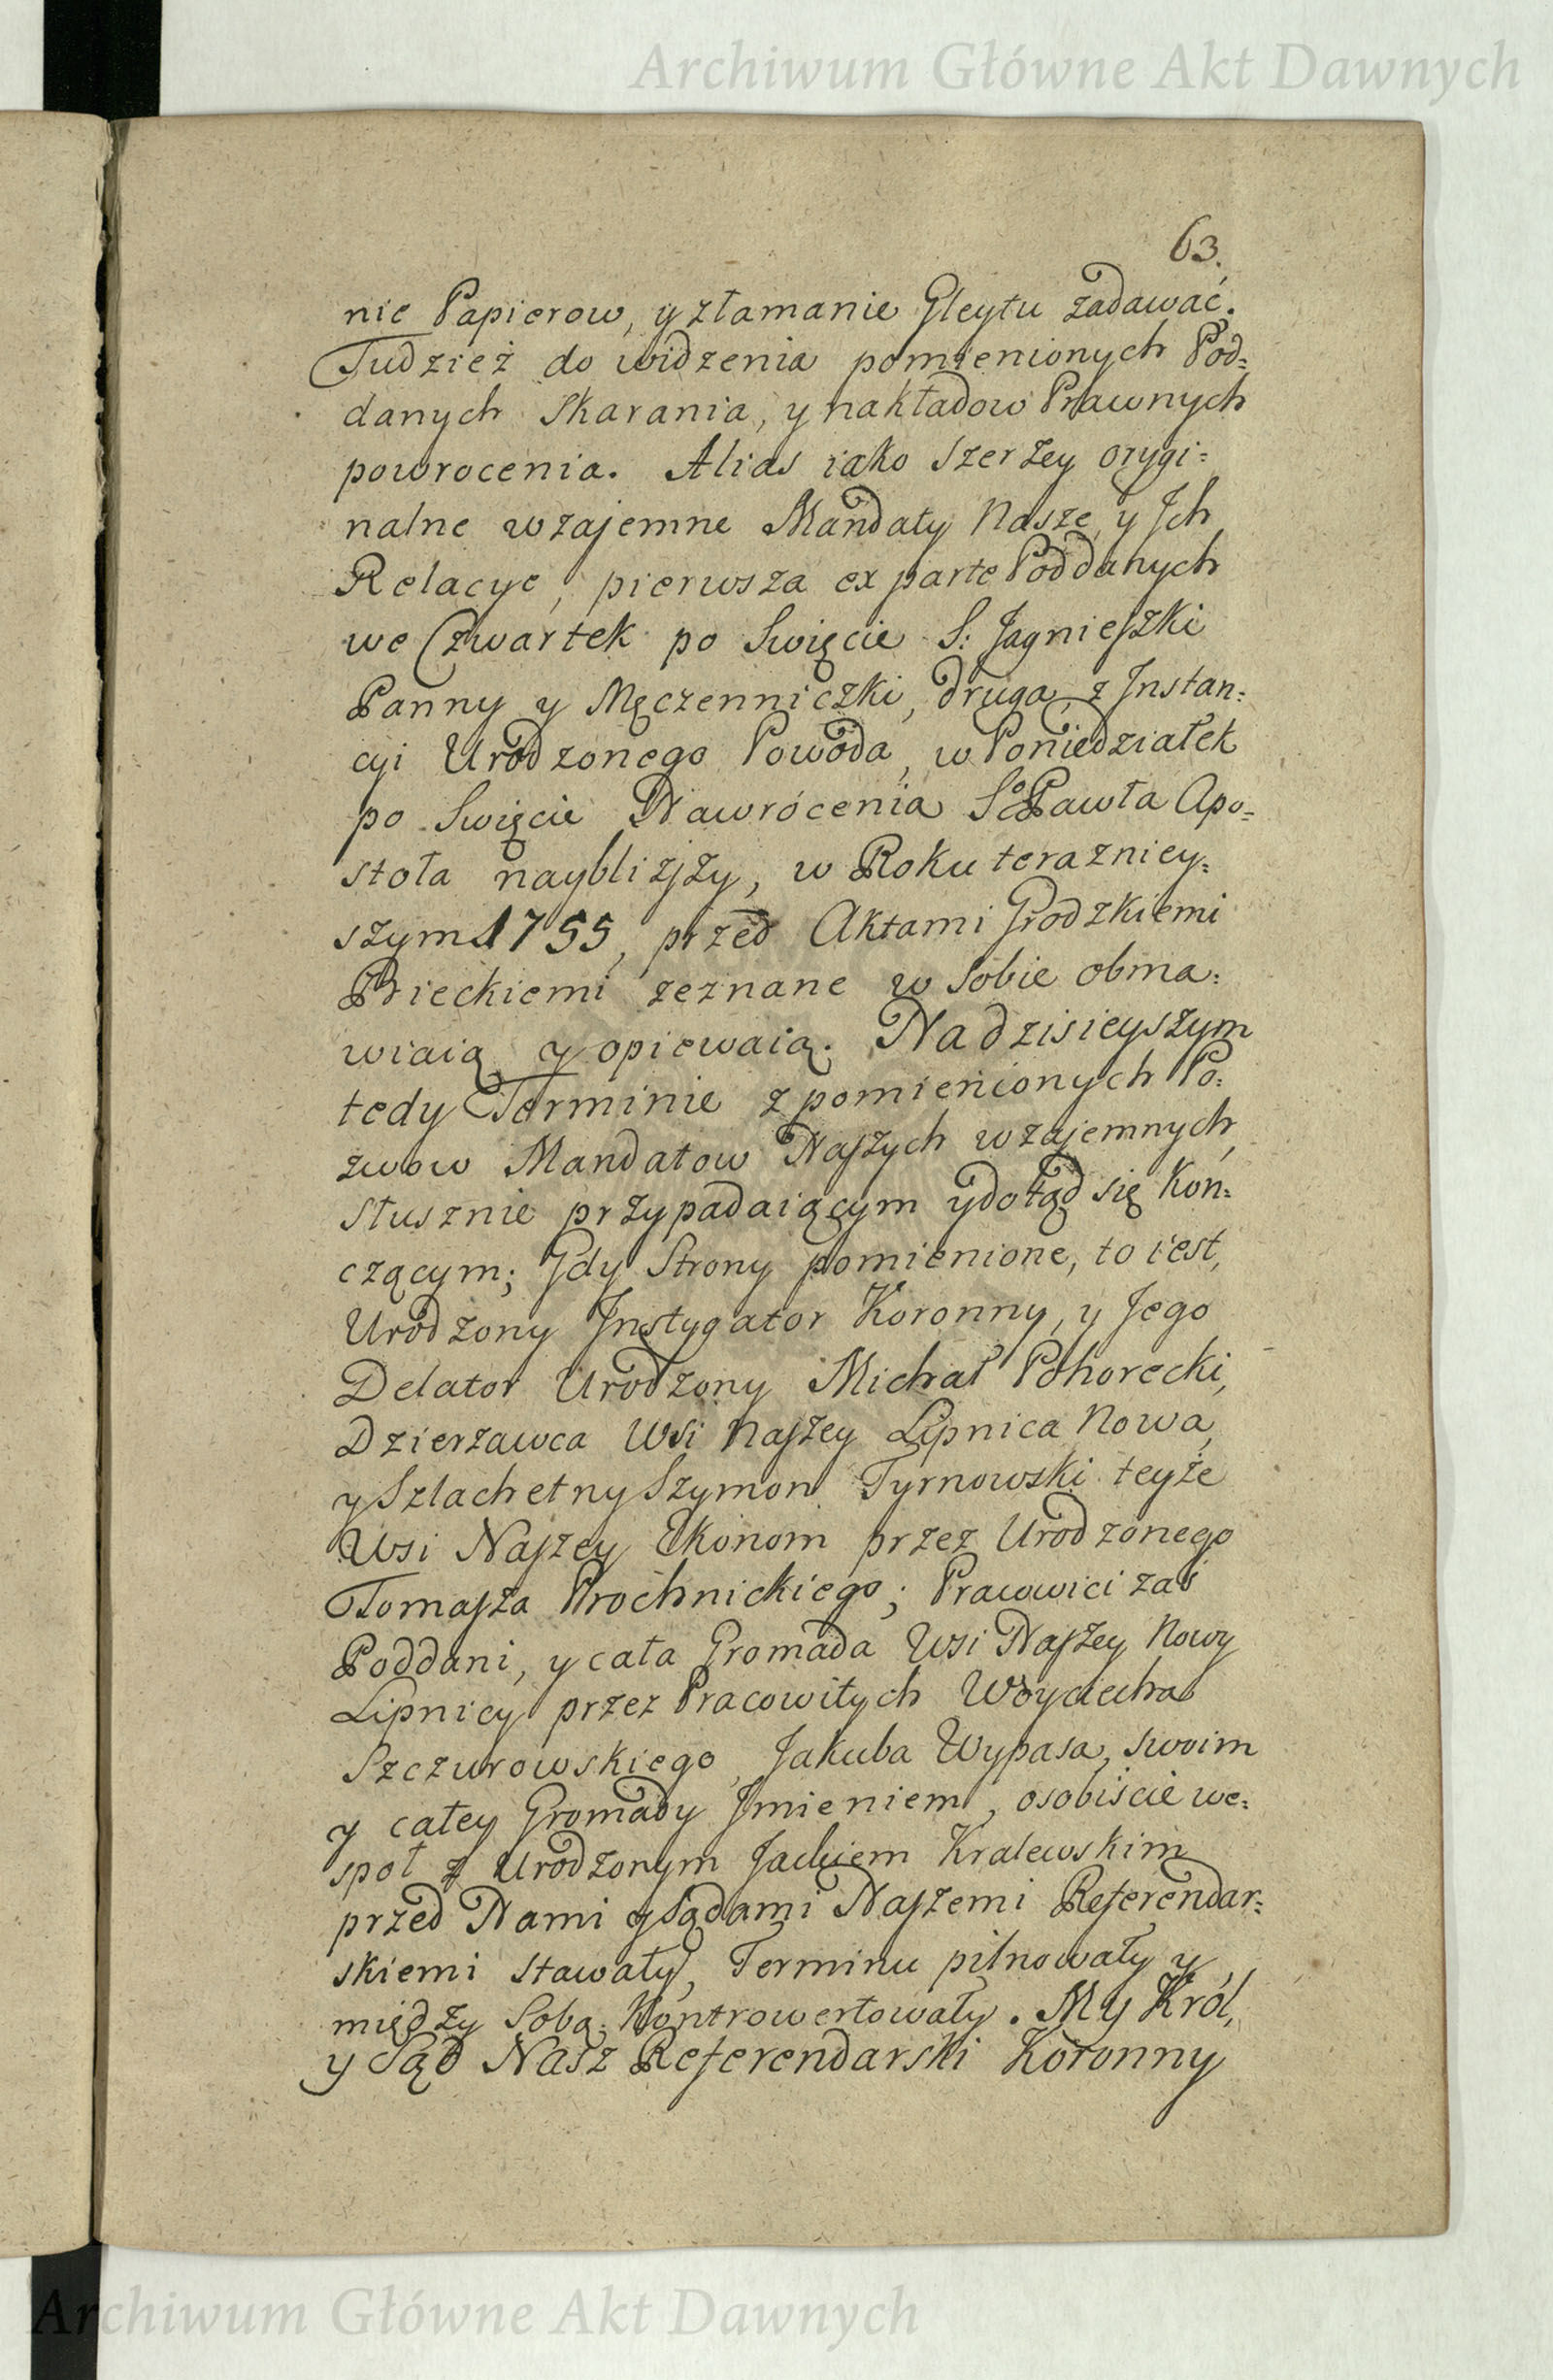 Archiwum Główne Akt Dawnych
63.
nie Papierow, y złamanie Gleytu zadawać.
Tudzież do widzenia pomienionych Pod=
danych skarania, y nakładow Prawnych
powrocenia. Alias iako szerzey orygi=
nalne wzajemne Mandaty Nasze y Ich
Relacye, pierwsza ex parte Poddanych
we Czwartek po Swięcie S: Jagnieszki
Panny y Męczenniczki, druga z Instan=
cyi Urodzonego Powoda, w Poniedziałek
po Swięcie Nawrócenia Sº Pawła Apo=
stoła naybliższy, w Roku terazniey=
szym 1755, przed Aktami Grodzkiemi
Bieckiemi zeznane w sobie obma=
wiaią y opiewaią. Na dzisieyszym
tedy Terminie z pomienionych Po=
zwow Mandatow Naszych wzajemnych
słusznie przypadaiącym y dotąd się kon=
czącym; Gdy Strony pomienione, to iest,
Urodzony Instygator Koronny, y Jego
Delator Urodzony Michał Pohorecki,
Dzierzawca Wsi Naszey Lipnica Nowa,
y Szlachetny Szymon Tyrnowski teyże
Wsi Naszey Ekonom przez Urodzonego
Tomasza Prochnickiego; Pracowici zaś
Poddani, y cała Gromada Wsi Naszey Nowy
Lipnicy przez Pracowitych Woyciecha
Szczurowskiego, Jakuba Wypasa, swoim
y całey Gromady Imieniem, osobiście we=
społ z Urodzonym Jackiem Kralewskim
przed Nami y Sądami Naszemi Referendar=
skiemi stawały, Terminu pilnowały y
między Sobą Kontrowertowały. My Król,
y Sąd Nasz Referendarski Koronny
Archiwum Główne Akt Dawnych